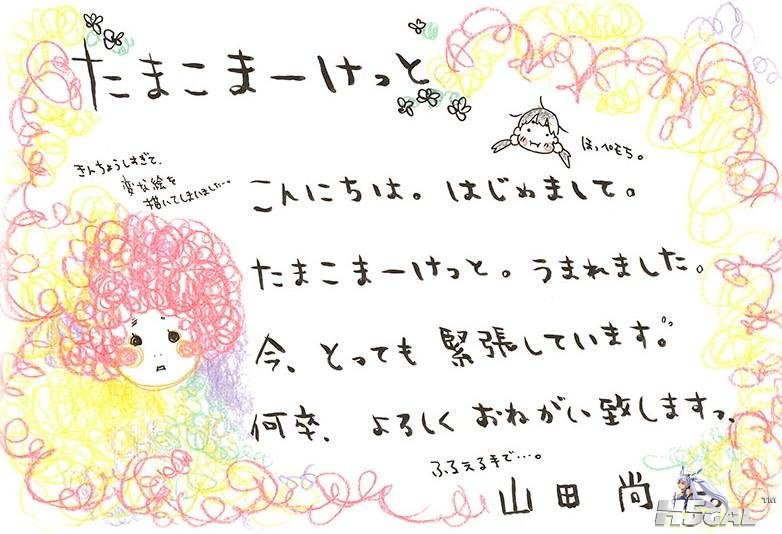 たまこまーけっと
ほっぺもち。
きんちょうしすぎて、
変な絵を
描いてしまいました…
こんにちは。はじめまして。
たまこまーけっと。うまれました。
今、とっても緊張しています。
何卒、よろしくおねがい致しますっ。
ふるえる手で…。
山田尚
H5GAL TM